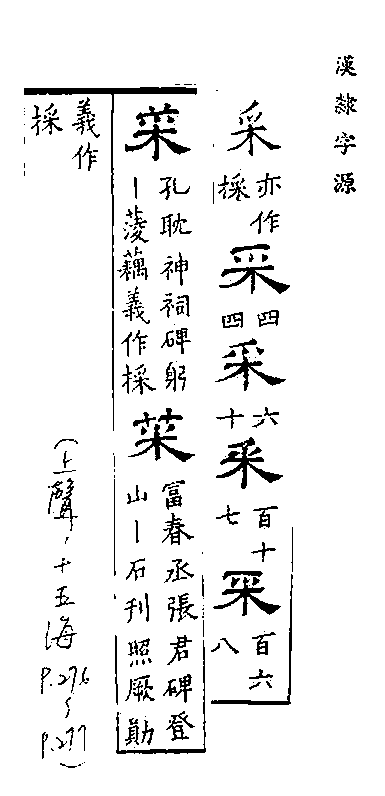 漢隸字源
采 亦作採 采 四四 采 六十 采 百十七 采 百六八
菜 孔耽神祠碑躬丨菱藕義作採 菜 富春丞張君碑登山丨石刋照厥勛
義作採
(上聲, 十五海 P.276 P.277)